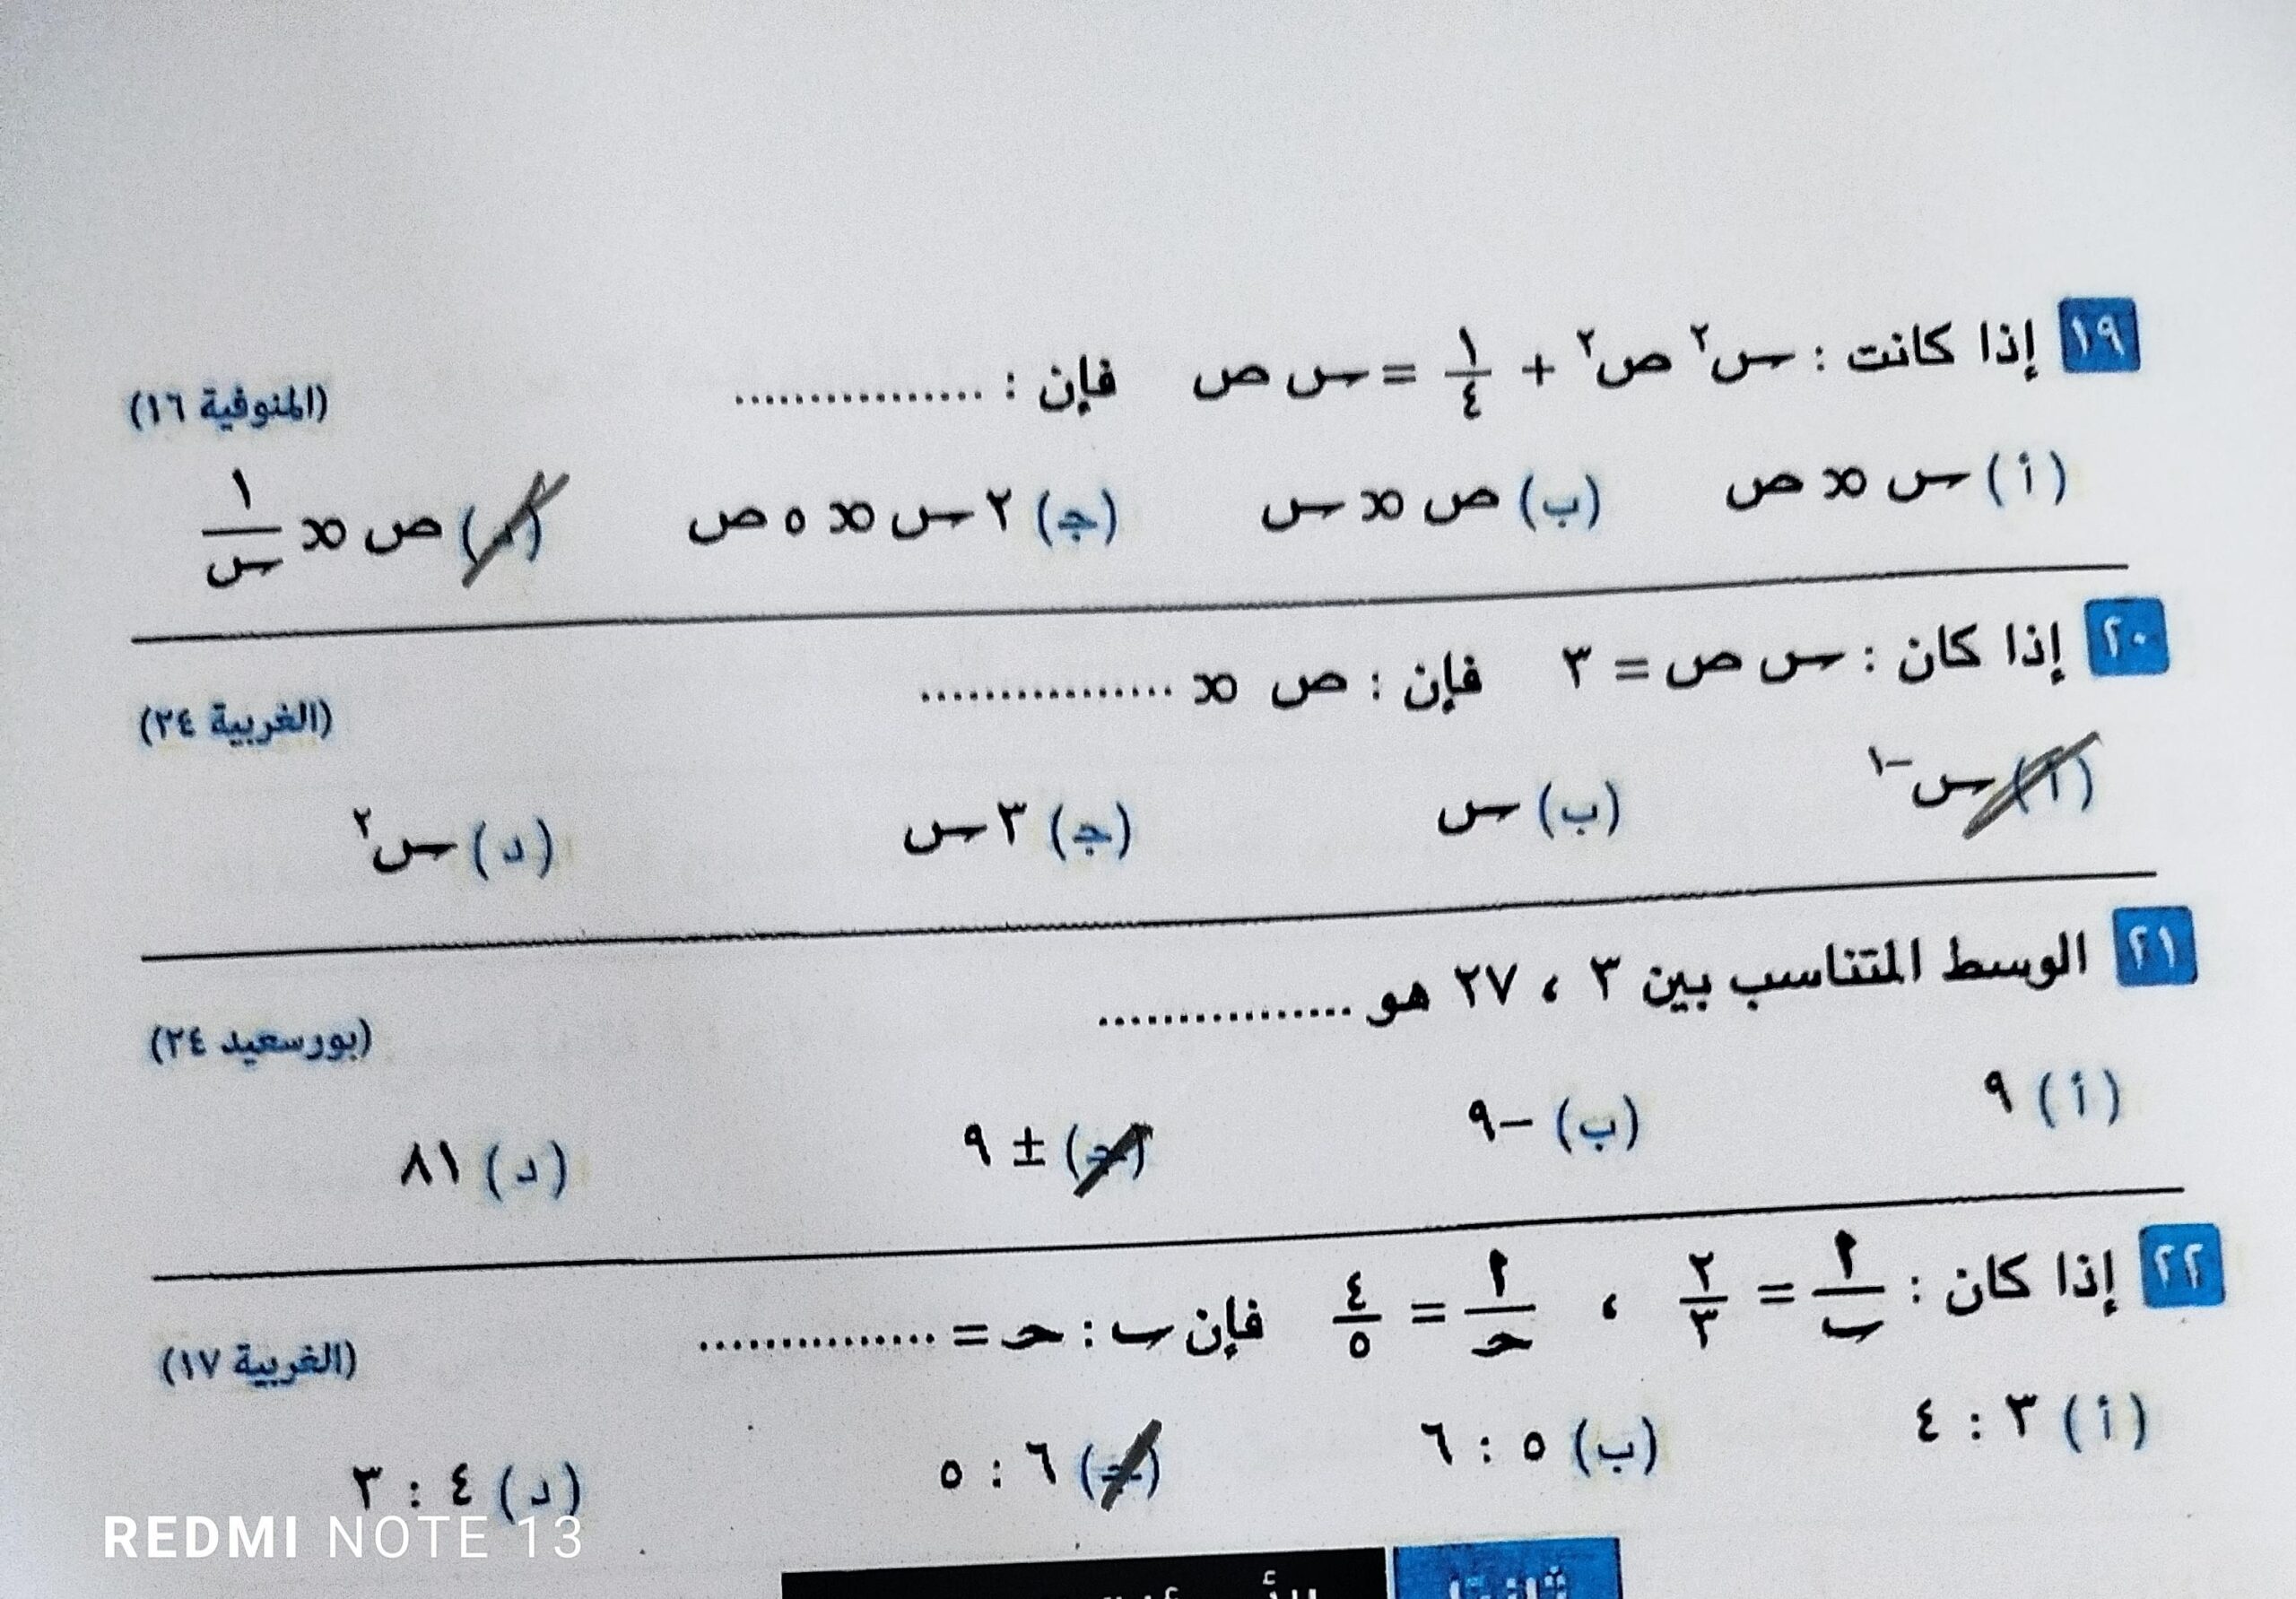 ١٩ إذا كانت : س٢ ص٢ + ١/٤ = س ص فإن : ................ (المنوفية ١٦)
(أ) س ∝ ص (ب) ص ∝ س (جـ) ٢ س ∝ ٥ ص (د) ص ∝ ١/س
٢٠ إذا كان : س ص = ٣ فإن : ص ∝ ................ (الغربية ٢٤)
(أ) س-١ (ب) س (جـ) ٣ س (د) س٢
٢١ الوسط المتناسب بين ٣ ، ٢٧ هو ................ (بورسعيد ٢٤)
(أ) ٩ (ب) -٩ (جـ) ± ٩ (د) ٨١
٢٢ إذا كان : أ/ب = ٢/٣ ، أ/حـ = ٤/٥ فإن ب : حـ = ............... (الغربية ١٧)
(أ) ٣ : ٤ (ب) ٥ : ٦ (جـ) ٦ : ٥ (د) ٤ : ٣
REDMI NOTE 13